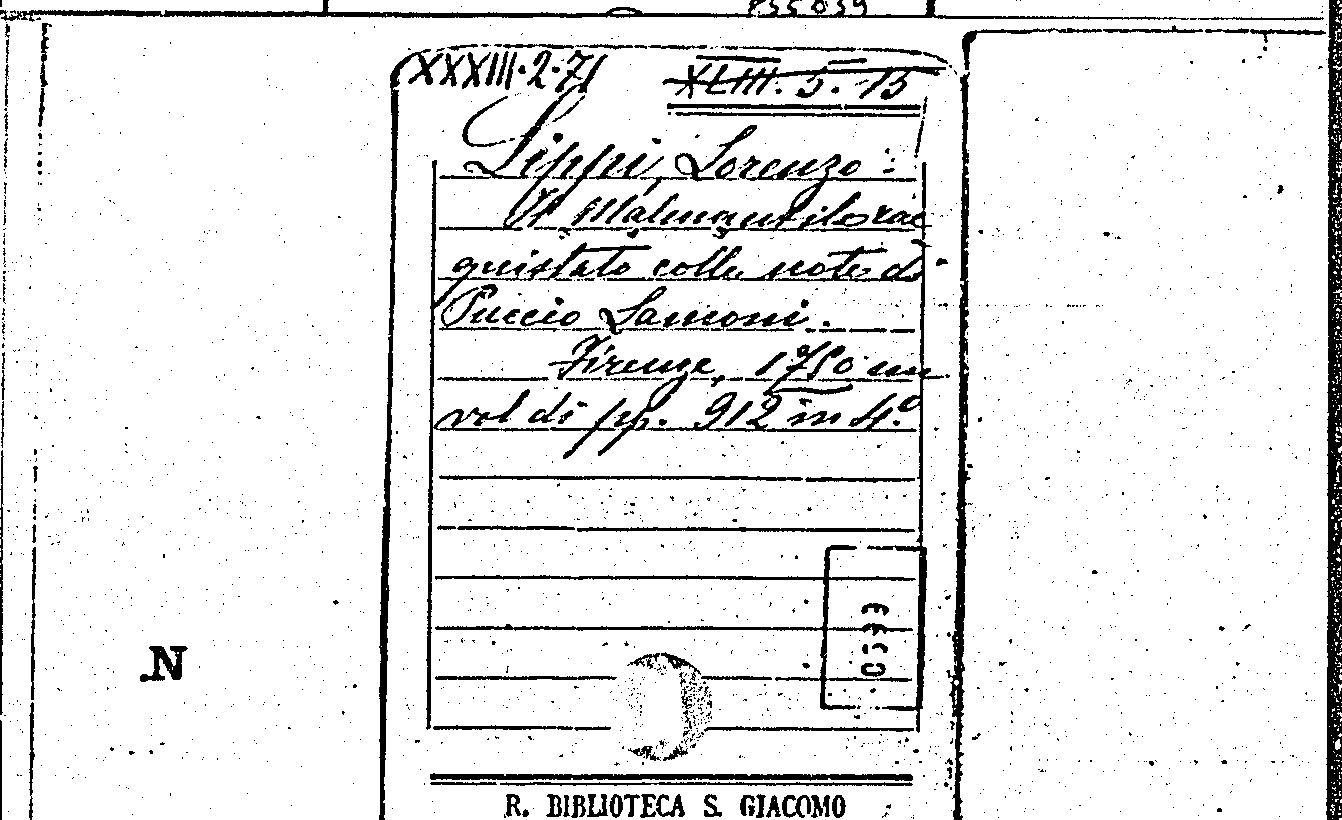 XXXIII·2·71 XLIII. 5. 15
Lippi, Lorenzo:
Il Malmantile rac
quistato colle note di
Puccio Lamoni.
Firenze, 1750 un
vol di pp. 912 in 4.º
0533
.N
R. BIBLIOTECA S. GIACOMO